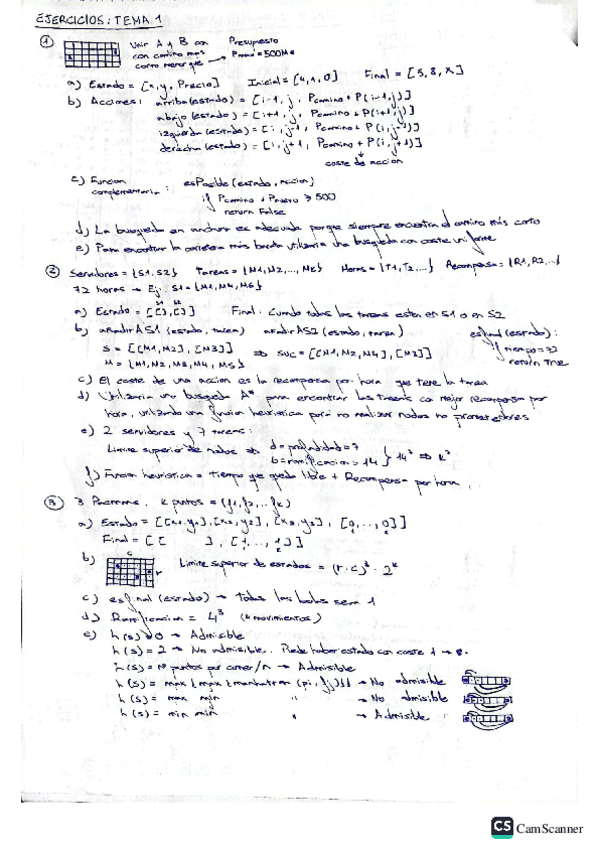 EJERCICIOS: TEMA 1
① Unir A y B con Presupuesto
con camino más
corto menor que → Pmax = 500M€
a) Estado = [x, y, Precio] Inicial = [4, 1, 0] Final = [5, 8, X]
b) Acciones: arriba(estado) = [i-1, j, Pcamino + P(i-1, j)]
abajo(estado) = [i+1, j, Pcamino + P(i+1, j)]
izquierda(estado) = [i, j-1, Pcamino + P(i, j-1)]
derecha(estado) = [i, j+1, Pcamino + P(i, j+1)]
coste de acción
c) Función esPosible(estado, acción)
complementaria: if Pcamino + Pnuevo > 500
return False
d) La búsqueda en anchura es adecuada porque siempre encuentra el camino más corto
e) Para encontrar la carretera más barata utilizaría una búsqueda con coste uniforme
② Servidores = {S1, S2} Tareas = {M1, M2, ..., MK} Horas = {T1, T2, ...} Recompensa = {R1, R2...}
72 horas → Ej. S1 = {M1, M4, M6}
S1 S2
a) Estado = [[], []] Final. Cuando todas las tareas estén en S1 o en S2
b) añadirAS1 (estado, tarea) añadirAS2 (estado, tarea) esfinal(estado):
S = [[M1, M2], [M3]] ⇒ suc = [[M1, M2, M4], [M3]] if tiempo = 72
M = {M1, M2, M3, M4, M5} return True
c) El coste de una acción es la recompensa por hora que tiene la tarea
d) Utilizaría una búsqueda A* para encontrar las tareas con mejor recompensa por
hora, utilizando una función heurística para no realizar nodos no prometedores
e) 2 servidores y 7 tareas:
Límite superior de nodos ⇒ d = profundidad = 7
b = ramificación > 14
f) Función heurística = Tiempo que queda libre + Recompensa por hora
③ 3 Pacmans. K puntos = (f1, f2, ... fk)
a) Estado = [[x1, y1], [x2, y2], [x3, y3], [0, ..., 0]]
Final = [[ ], [1, ..., 1]]
b) Límite superior de estados = (r · c)³ · 2ᵏ
c) esfinal (estado) → Todas las bolas sean 1
d) Ramificación = 4³ (4 movimientos)
e) h(s) = 0 → Admisible
h(s) = 2 → No admisible. Puede haber estado con coste 1
h(s) = Nº puntos por comer/n → Admisible
h(s) = max {max {manhattan (pi, fj)}} → No admisible
h(s) = max min " → No admisible
h(s) = min min " → Admisible
CS CamScanner